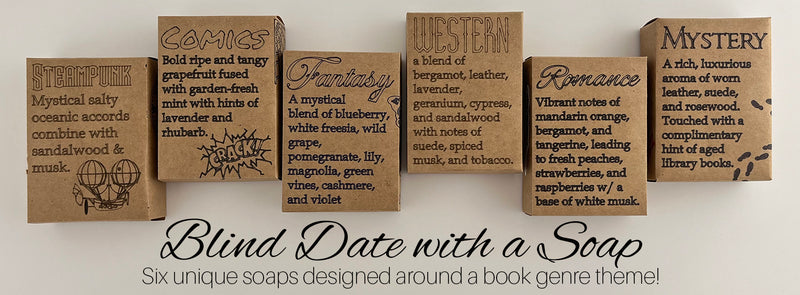 STEAMPUNK
Mystical salty
oceanic accords
combine with
sandalwood &
musk.
COMICS
Bold ripe and tangy
grapefruit fused
with garden-fresh
mint with hints of
lavender and
rhubarb.
CRACK!
Fantasy
A mystical
blend of blueberry,
white freesia, wild
grape,
pomegranate, lily,
magnolia, green
vines, cashmere,
and violet
WESTERN
a blend of
bergamot, leather,
lavender,
geranium, cypress,
and sandalwood
with notes of
suede, spiced
musk, and tobacco.
Romance
Vibrant notes of
mandarin orange,
bergamot, and
tangerine, leading
to fresh peaches,
strawberries, and
raspberries w/ a
base of white musk.
MYSTERY
A rich, luxurious
aroma of worn
leather, suede,
and rosewood.
Touched with a
complimentary
hint of aged
library books.
Blind Date with a Soap
Six unique soaps designed around a book genre theme!